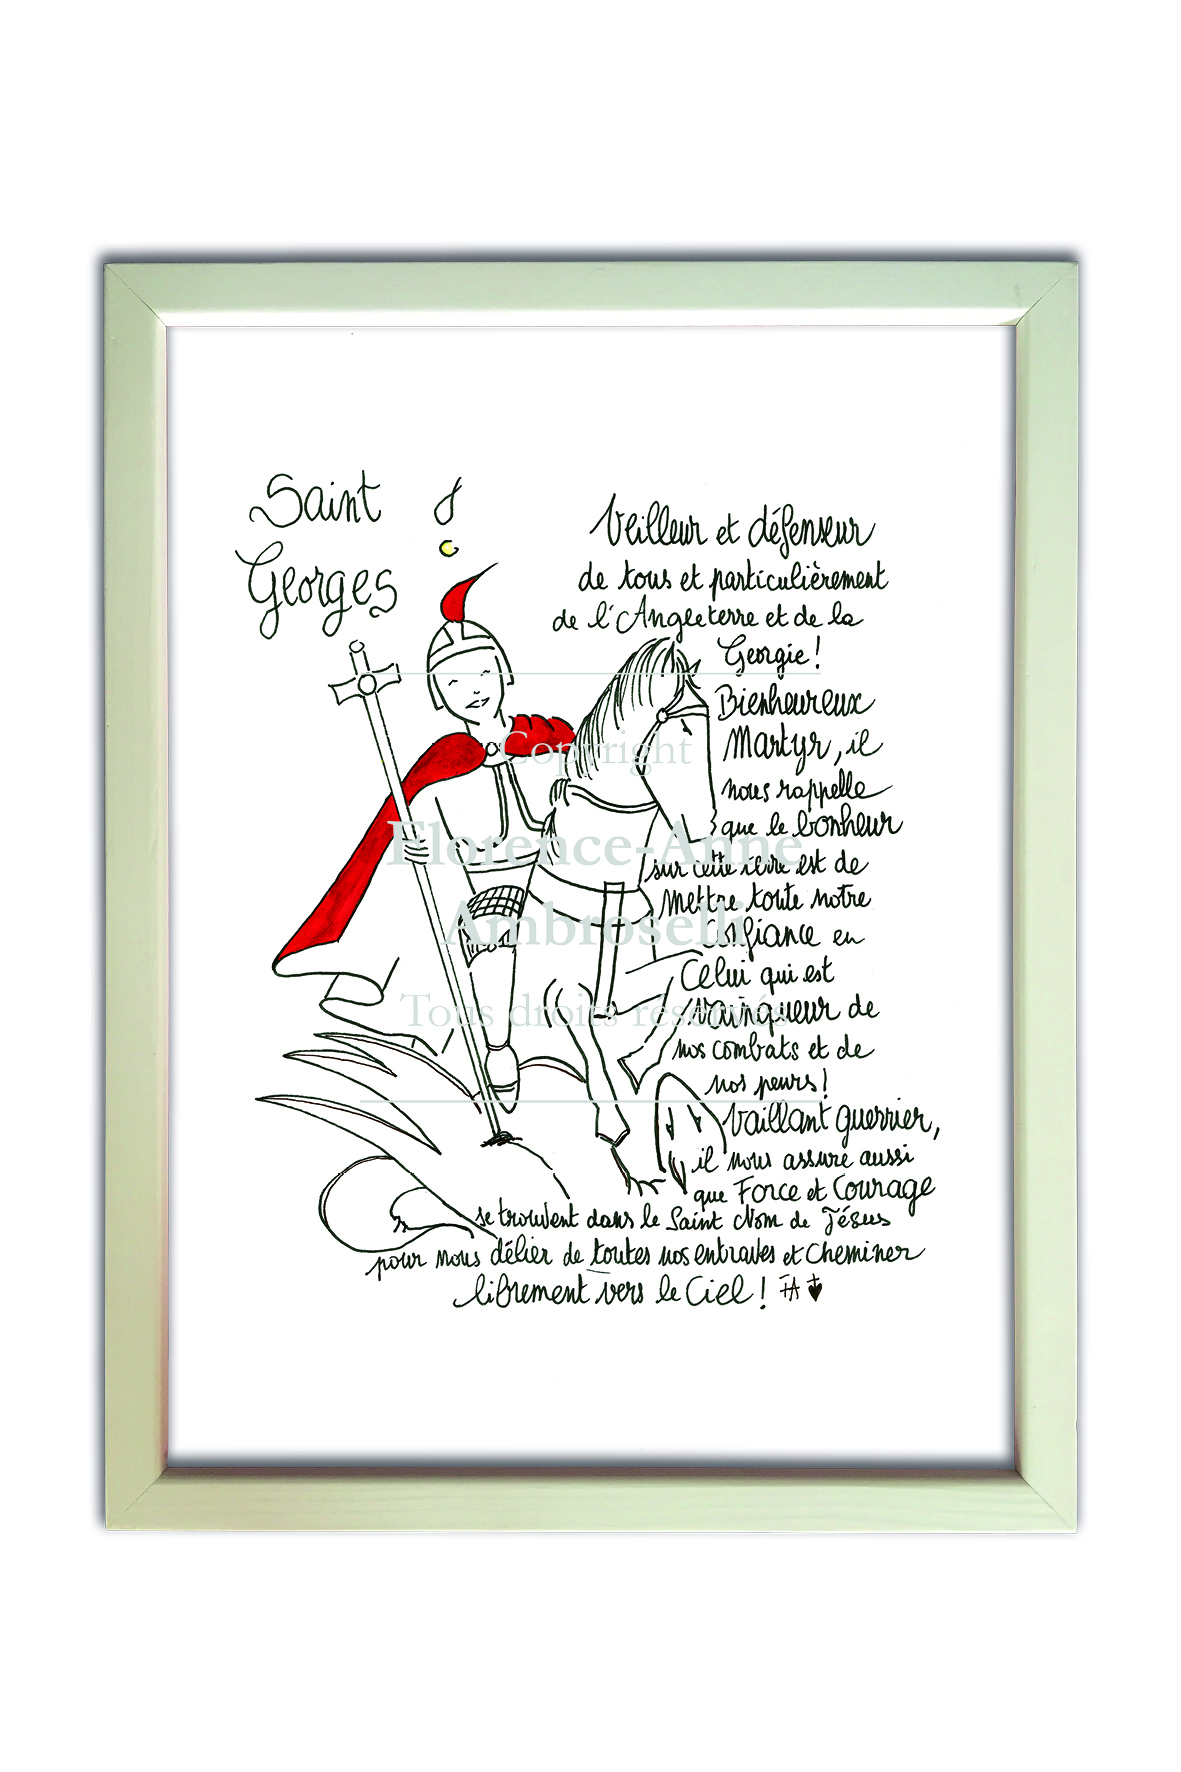 Saint
Georges
Veilleur et défenseur
de tous et particulièrement
de l'Angleterre et de la
Georgie !
Bienheureux
Martyr, il
nous rappelle
que le bonheur
sur cette terre est de
mettre toute notre
confiance en
Celui qui est
vainqueur de
nos combats et de
nos peurs !
Vaillant guerrier,
il nous assure aussi
que Force et Courage
se trouvent dans le Saint Nom de Jésus
pour nous délier de toutes nos entraves et cheminer
librement vers le Ciel ! FA
Copyright
Florence-Anne
Ambroselli
Tous droits réservés